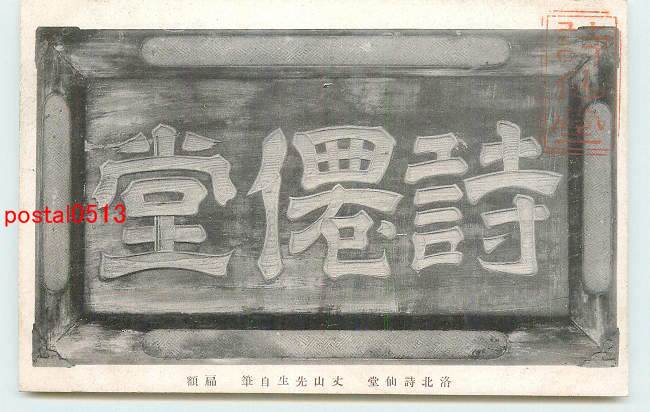 詩僊堂
postal0513
洛北詩仙堂 丈山先生自筆 扁額